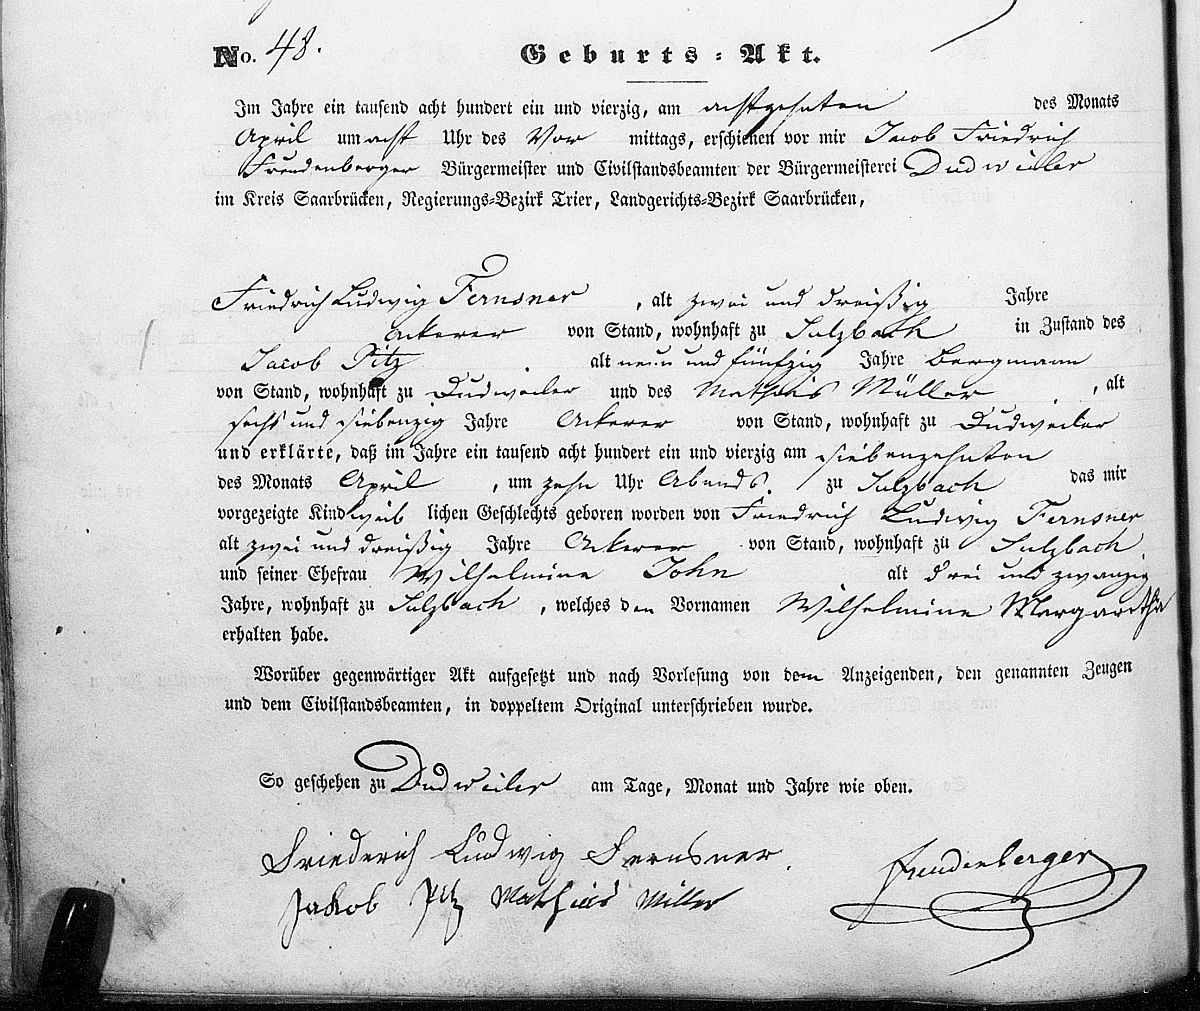 No. 48. Geburts-Akt.
Im Jahre ein tausend acht hundert ein und vierzig, am achtzehnten des Monats
April um acht Uhr des Vor mittags, erschienen vor mir Jacob Friedrich
Freudenberger Bürgermeister und Civilstandsbeamten der Bürgermeisterei Dudweiler
im Kreis Saarbrücken, Regierungs-Bezirk Trier, Landgerichts-Bezirk Saarbrücken,
Friedrich Ludwig Fernsner, alt zwei und dreißig Jahre
Ackerer von Stand, wohnhaft zu Sulzbach in Zustand des
Jacob Pitz alt neun und fünfzig Jahre Bergmann
von Stand, wohnhaft zu Dudweiler und des Mathias Müller, alt
sechs und siebenzig Jahre Ackerer von Stand, wohnhaft zu Dudweiler
und erklärte, daß im Jahre ein tausend acht hundert ein und vierzig am siebenzehnten
des Monats April, um zehn Uhr Abends. zu Sulzbach das mir
vorgezeigte Kind weib lichen Geschlechts geboren worden von Friedrich Ludwig Fernsner
alt zwei und dreißig Jahre Ackerer von Stand, wohnhaft zu Sulzbach
und seiner Ehefrau Wilhelmine John alt drei und zwanzig
Jahre, wohnhaft zu Sulzbach, welches den Vornamen Wilhelmine Margaretha
erhalten habe.
Worüber gegenwärtiger Akt aufgesetzt und nach Vorlesung von dem Anzeigenden, den genannten Zeugen
und dem Civilstandsbeamten, in doppeltem Original unterschrieben wurde.
So geschehen zu Dudweiler am Tage, Monat und Jahre wie oben.
Friederich Ludwig Fernsner. Freudenberger
Jakob Pitz Mathias Miller